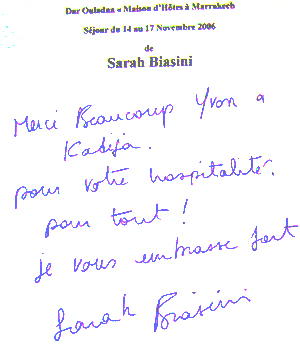 Dar Ouladna « Maison d'Hôtes à Marrakech
Séjour du 14 au 17 Novembre 2006
de
Sarah Biasini
Merci Beaucoup Yvon a
Kadija.
pour votre hospitalité.
pour tout !
je vous embrasse fort
Sarah Biasini